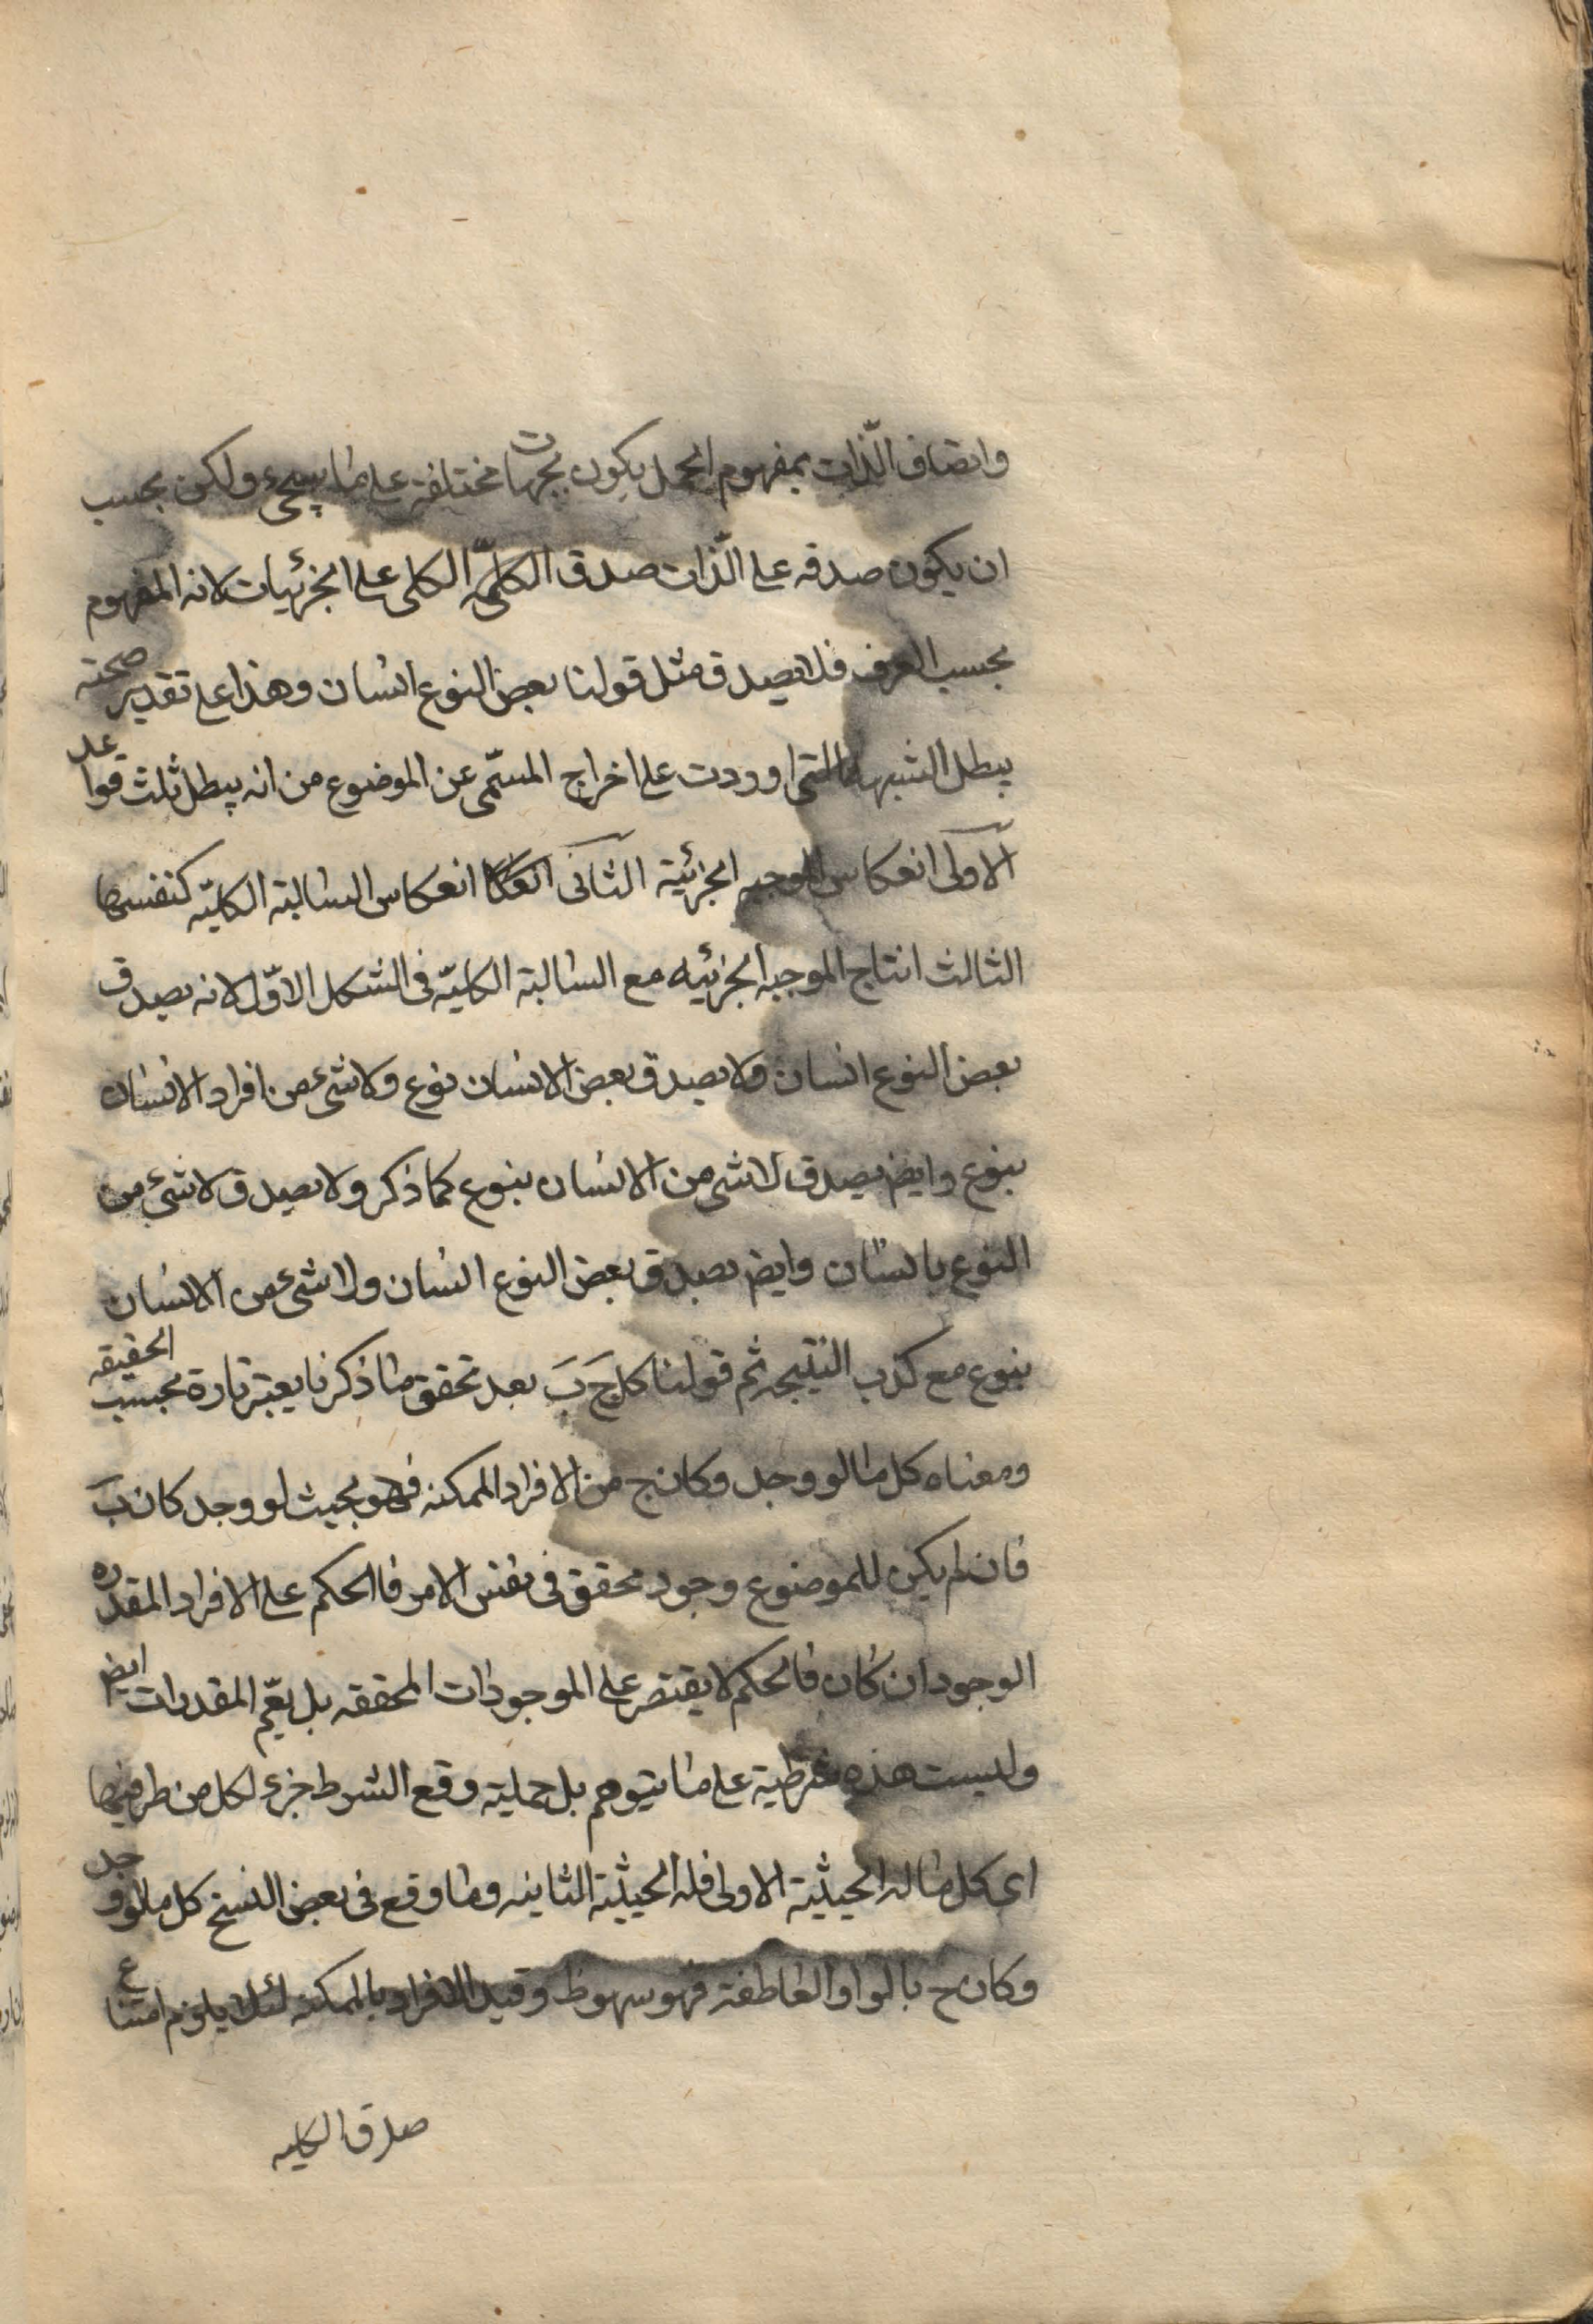 واتصاف الذّات بمفهوم المحمل يكون بجهات مختلفة على ما سيجيء ولكن بحسب
ان يكون صدقه على الذّات صدق الكلّيّه الكلى على الجزئيات لانه المفهوم
بحسب العرف فلا يصدق مثل قولنا بعض النوع انسان وهذا على تقدير صحته
يبطل الشبهه التى اوردت على اخراج المسمّى عن الموضوع من انه يبطل ثلث قواعد
الاولى انعكاس الموجبه الجزئية الثانى انعكا انعكاس السالبة الكليّه كنفسها
الثالث انتاج الموجبه الجزئيه مع السالبة الكليّه فى الشكل الاوّل لانه يصدق
بعض النوع انسان ولا يصدق بعض الانسان نوع ولا شىء من افراد الانسان
بنوع وايض يصدق لا شى من الانسان بنوع كما ذكر ولا يصدق لا شىء من
النوع بانسان وايض يصدق بعض النوع انسان ولا شىء من الانسان
بنوع مع كذب النتيجه ثم قولنا كل جَ بَ بعد تحقق ما ذكرنا يعتبر تارة بحسب الحقيقه
ومعناه كل ما لو وجد وكان ج من الافراد الممكنه فهو بحيث لو وجد كان بَ
فان لم يكن للموضوع وجود محقق فى نفس الامر فاالحكم على الافراد المقدره
الوجود ان كان فالحكم لا يقتصر على الموجودات المحققه بل يعّم المقدرات ايض
وليست هذه شرطية على ما يتوهم بل حملية وقع الشرط جزء لكل من طرفيها
اى كل ما له الحيثية الاولى فله الحيثية الثانيه وما وقع فى بعض النسخ كل ما لو وجد
وكان ج بالواو العاطفة فهو سهو ظ وقيد الافراد بالممكنه لئلا يلزم امتناع
صدق الكليه